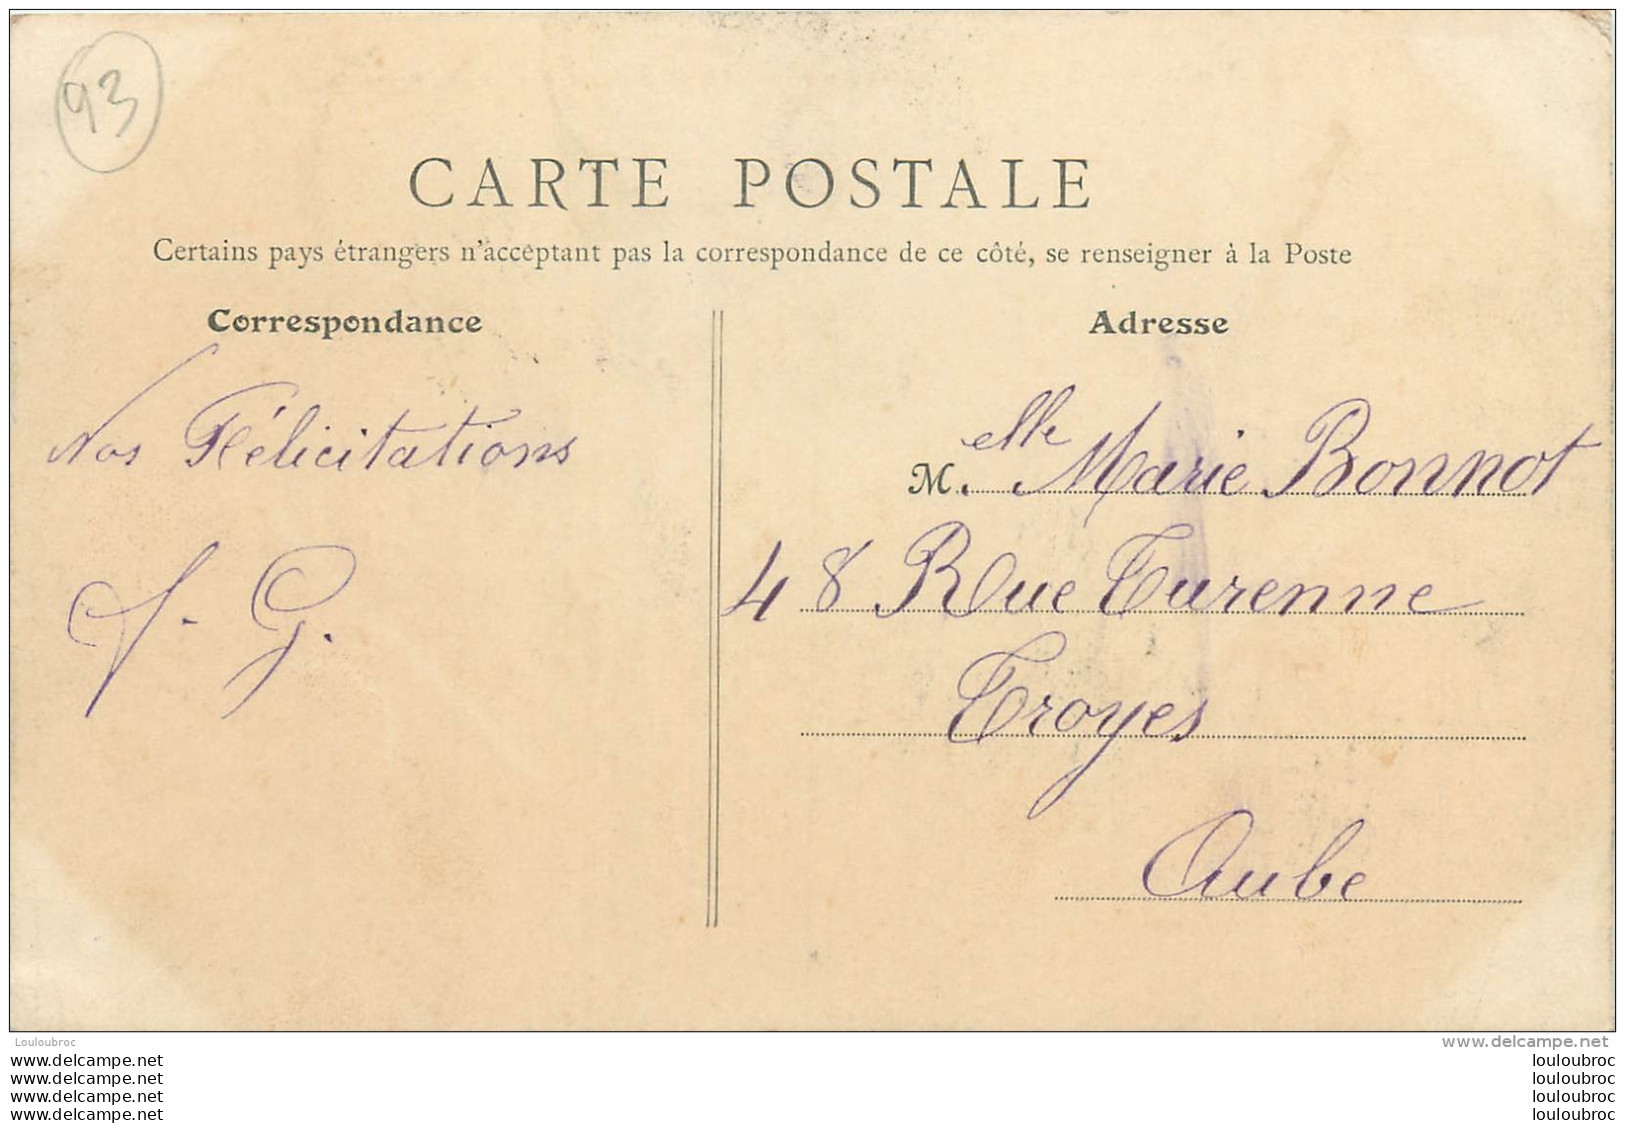 93
CARTE POSTALE
Certains pays étrangers n'acceptant pas la correspondance de ce côté, se renseigner à la Poste
Correspondance
Nos Félicitations
J. G.
Adresse
M.elle Marie Bonnot
48 Rue Turenne
Troyes
Aube
Louloubroc
www.delcampe.net
www.delcampe.net
www.delcampe.net
www.delcampe.net
www.delcampe.net
louloubroc
louloubroc
louloubroc
louloubroc